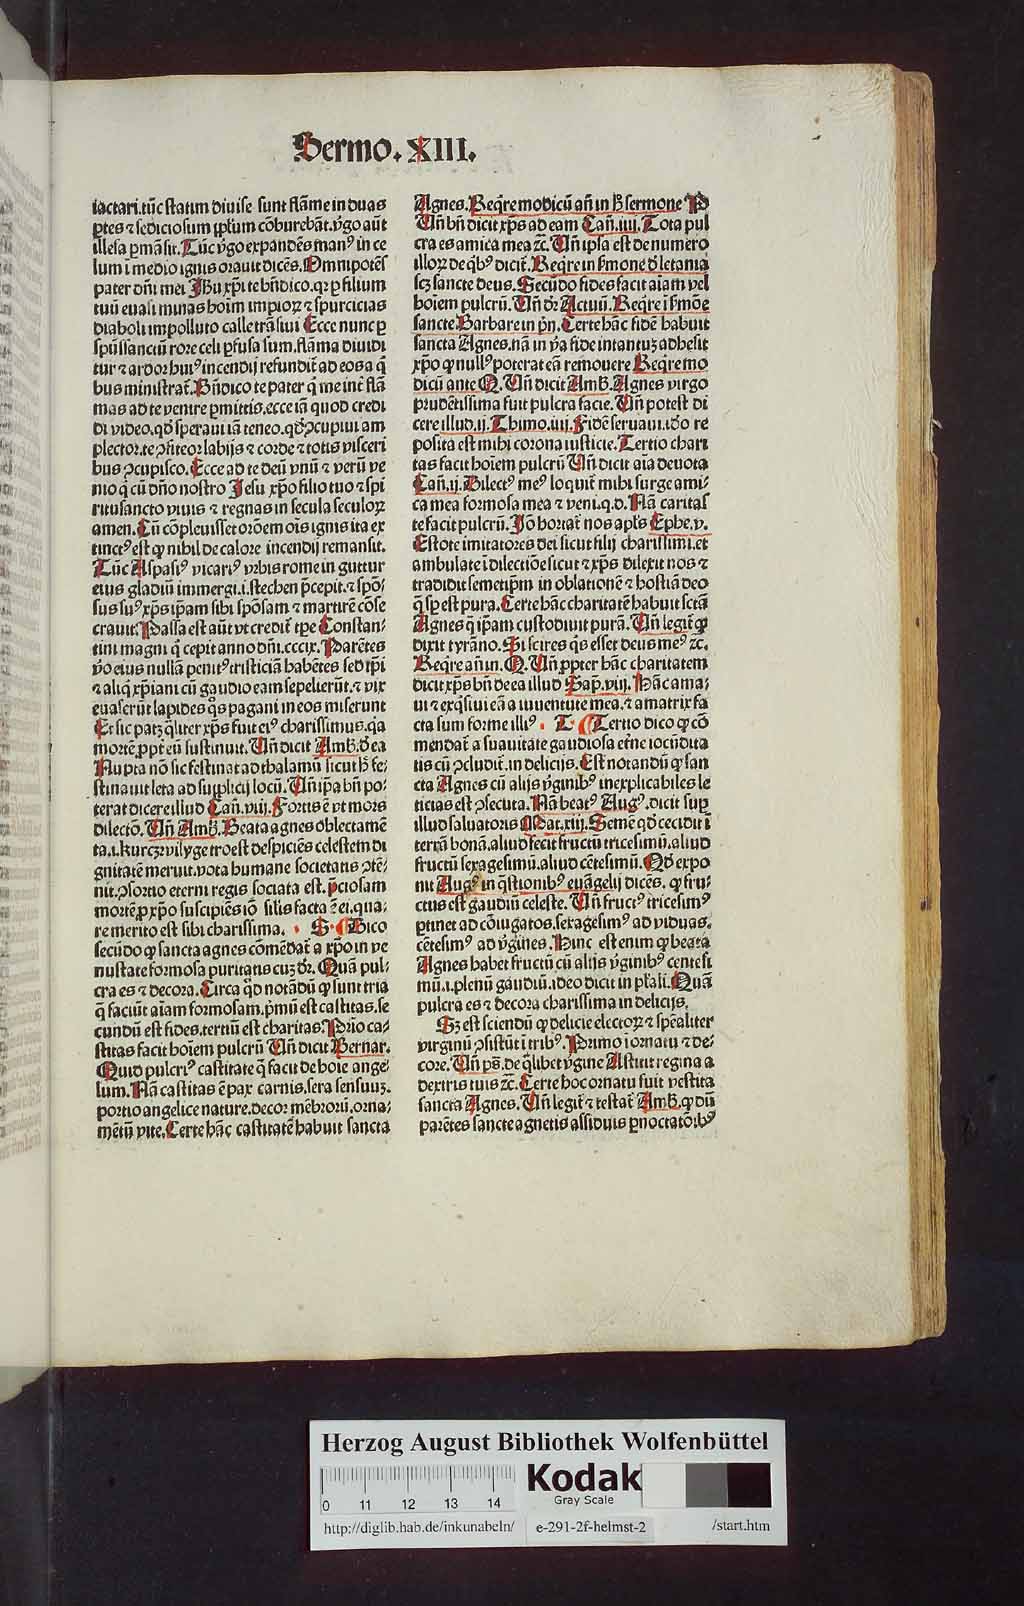 Sermo. XIII.
iactari. tūc statim diuise sunt flāme in duas
ptes ⁊ sediciosum pplum cōburebāt. vgo aūt
illesa pmāsit. Tūc vgo expandēs manꝰ in ce
lum ī medio ignis orauit dicēs. Omnipotēs
pater dn̄i mei Jhu xp̄i te bn̄dico. qꝛ p filium
tuū euasi minas hoīm impioꝝ ⁊ spurcicias
diaboli impolluto calle trāsiui Ecce nunc p
spūssanctū rore celi pfusa sum. flāma diuidi
tur ⁊ ardor huiꝰ incendij refundit̄ ad eos a q̄
bus ministrat̄. Bn̄dico te pater q̄ me int̄ flā
mas ad te venire pmittis. ecce iā quod credi
di video. qd̄ speraui iā teneo. qd̄ ꝯcupiui am
plector. te ꝯfiteor labijs ⁊ corde ⁊ totis visceri
bus ꝯcupisco. Ecce ad te deū vnū ⁊ verū ve
nio q̄ cū dn̄o nostro Jesu xp̄o filio tuo ⁊ spi
ritusancto viuis ⁊ regnas in secula seculoꝝ
amen. Cū cōpleuisset orōem oīs ignis ita ex
tinctꝰ est ꝙ nihil de calore incendij remansit.
Tūc Aspasiꝰ vicariꝰ vrbis rome in guttur
eius gladiū immergi .i. stechen p̄cepit. ⁊ spō⸗
sus suꝰ xp̄s ip̄am sibi spōsam ⁊ martirē cōse
crauit. Passa est aūt vt credit̄ tp̄e Constan⸗
tini magni q̄ cepit anno dn̄i. cccix. Parētes
vo eius nullā penitꝰ tristiciā habētes sed xp̄i
⁊ aliq̄ xp̄iani cū gaudio eam sepelierūt. ⁊ vix
euaserūt lapides q̄s pagani in eos miserunt
Et sic patꝫ q̄liter xp̄s fuit eiꝰ charissimus. q̄a
mortē ppt̄ eū sustinuit. Vn̄ dicit Amb̄. d̄ ea
Nupta nō sic festinat ad thalamū sicut h̄ fe⸗
stinauit leta ad supplicij locū. Vn̄ ip̄a bn̄ po⸗
terat dicere illud Can̄. viij. Fortis ē vt mors
dilectō. Vn̄ Amb̄. Beata agnes oblectamē
ta .i. kurczwilyge troest despiciēs celestem di
gnitatē meruit. vota humane societatis ꝯtē⸗
nit. ꝯsortio eterni regis sociata est. p̄ciosam
mortē p xp̄o suscipiēs iō silis facta ē ei. qua⸗
re merito est sibi charissima. S. ¶ Dico
secūdo ꝙ sancta agnes cōmēdat̄ a xp̄o in ve
nustate formosa puritatis cuꝫ dr̄. Quā pul⸗
cra es ⁊ decora. Circa qd̄ notādū ꝙ sunt tria
q̄ faciūt aīam formosam. p̄mū est castitas. se
cundū est fides. tertiū est charitas. Prīo ca⸗
stitas facit hoīem pulcrū Vn̄ dicit Bernar.
Quid pulcriꝰ castitate q̄ facit de hoīe ange⸗
lum. Nā castitas ē pax carnis. sera sensuuꝫ.
portio angelice nature. decor mēbrorū. orna⸗
mētū vite. Certe hāc castitatē habuit sancta
Agnes. Reqre modicū an̄ in h̄ sermone P
Vn̄ bn̄ dicit xp̄s ad eam Can̄. iiij. Tota pul
cra es amica mea ⁊c̄. Vn̄ ipsa est de numero
illoꝝ de q̄bꝰ dicit̄. Reqre in s̄mone d̄ letania
scꝫ sancte deus. Secūdo fides facit aīam vel
hoīem pulcrū. Vn̄ dr̄. Actuū. Reqre ī s̄mōe
sancte Barbare in pn̄. Certe hāc fidē habuit
sancta Agnes. nā in ip̄a fide intantuꝫ adhesit
xp̄o ꝙ nullꝰ poterat eā remouere Reqre mo
dicū ante Q. Vn̄ dicit Amb̄. Agnes virgo
prudētissima fuit pulcra facie. Vn̄ potest di
cere illud .ij. Thimo. iiij. Fidē seruaui. iōo re
posita est mihi corona iusticie. Tertio chari
tas facit hoīem pulcrū Vn̄ dicit aīa deuota
Can̄. ij. Dilectꝰ meꝰ loquit̄ mihi surge ami⸗
ca mea formosa mea ⁊ veni. q. d. Nā caritas
te facit pulcrū. Jō hortat̄ nos apl̄s Ephe. v.
Estote imitatores dei sicut filij charissimi. et
ambulate ī dilectiōe sicut ⁊ xp̄s dilexit nos ⁊
tradidit semetip̄m in oblationē ⁊ hostiā deo
q̄ sp est pura. Certe hāc charitatē habuit sctā
Agnes q̄ ip̄am custodiuit purā. Vn̄ legit̄ ꝙ
dixit tyrāno. Si scires q̄s esset deus meꝰ ⁊c̄.
Reqre an̄ in. Q. Vn̄ ppter hāc charitatem
dicit xp̄s bn̄ de ea illud Sap̄. viij. Hāc ama⸗
ui ⁊ exq̄siui eā a iuuentute mea. ⁊ amatrix fa
cta sum forme illiꝰ. T. ¶ Tertio dico ꝙ cō
mendat̄ a suauitate gaudiosa et̄ne iocūdita
tis cū ꝯcludit̄. in delicijs. Est notandū ꝙ san
cta Agnes cū alijs vginibꝰ inexplicabiles le
ticias est ꝯsecuta. Nā beatꝰ Augꝰ. dicit sup
illud saluatoris Mat. xiij. Semē qd̄ cecidit ī
terrā bonā. aliud fecit fructū tricesimū. aliud
fructū sexagesimū. aliud cētesimū. Qd̄ expo
nit Augꝰ in q̄stionibꝰ euāgelij dicēs. ꝙ fru⸗
ctus est gaudiū celeste. Vn̄ fructꝰ tricesimꝰ
ptinet ad cōiugatos. sexagesimꝰ ad viduas.
cētesimꝰ ad vgines. Hinc est enim ꝙ beata
Agnes habet fructū cū alijs vginibꝰ centesi
mū .i. plenū gaudiū. ideo dicit in psali. Quā
pulcra es ⁊ decora charissima in delicijs.
Sꝫ est sciendū ꝙ delicie electoꝝ ⁊ spēaliter
virginū ꝯsistūt ī tribꝰ. Primo ī ornatu ⁊ de⸗
core. Vn̄ ps̄. de q̄libet vgine Astitit regina a
dextris tuis ⁊c̄. Certe hoc ornatu fuit vestita
sancta Agnes. Vn̄ legit̄ ⁊ testat̄ Amb̄. ꝙ dū
parētes sancte agnetis assiduis pnoctatōibꝰ
Herzog August Bibliothek Wolfenbüttel
Kodak
Gray Scale
0 11 12 13 14
http://diglib.hab.de/inkunabeln/ e-291-2f-helmst-2 /start.htm